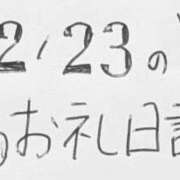 2/23の
お礼日記